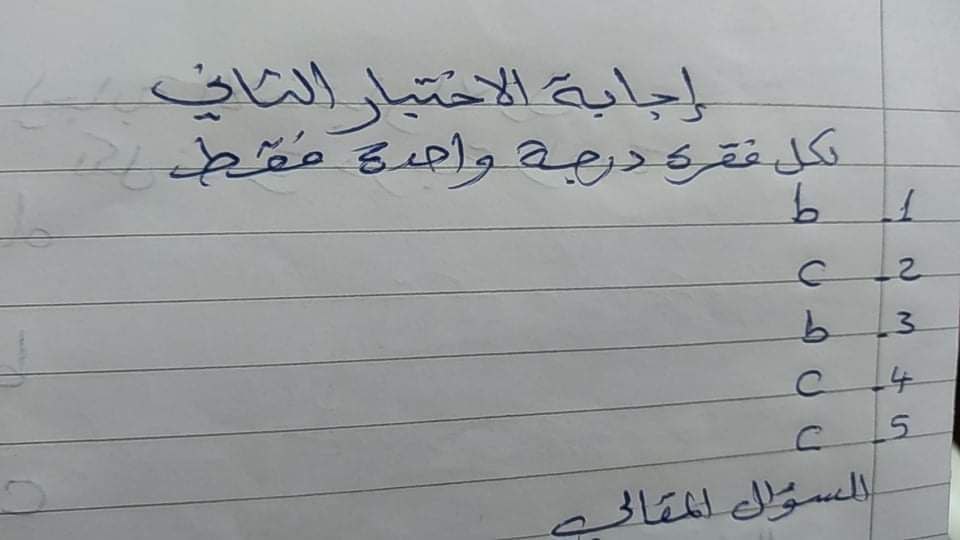 إجابة الاختبار الثاني
لكل فقرة درجة واحدة فقط
1- b
2- c
3- b
4- c
5- c
السؤال المقالي